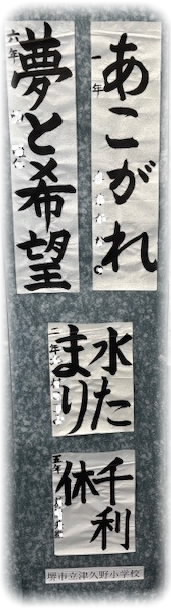 あこがれ
一年
夢と希望
六年
水た
まり
二年
千利
休
五年
堺市立津久野小学校